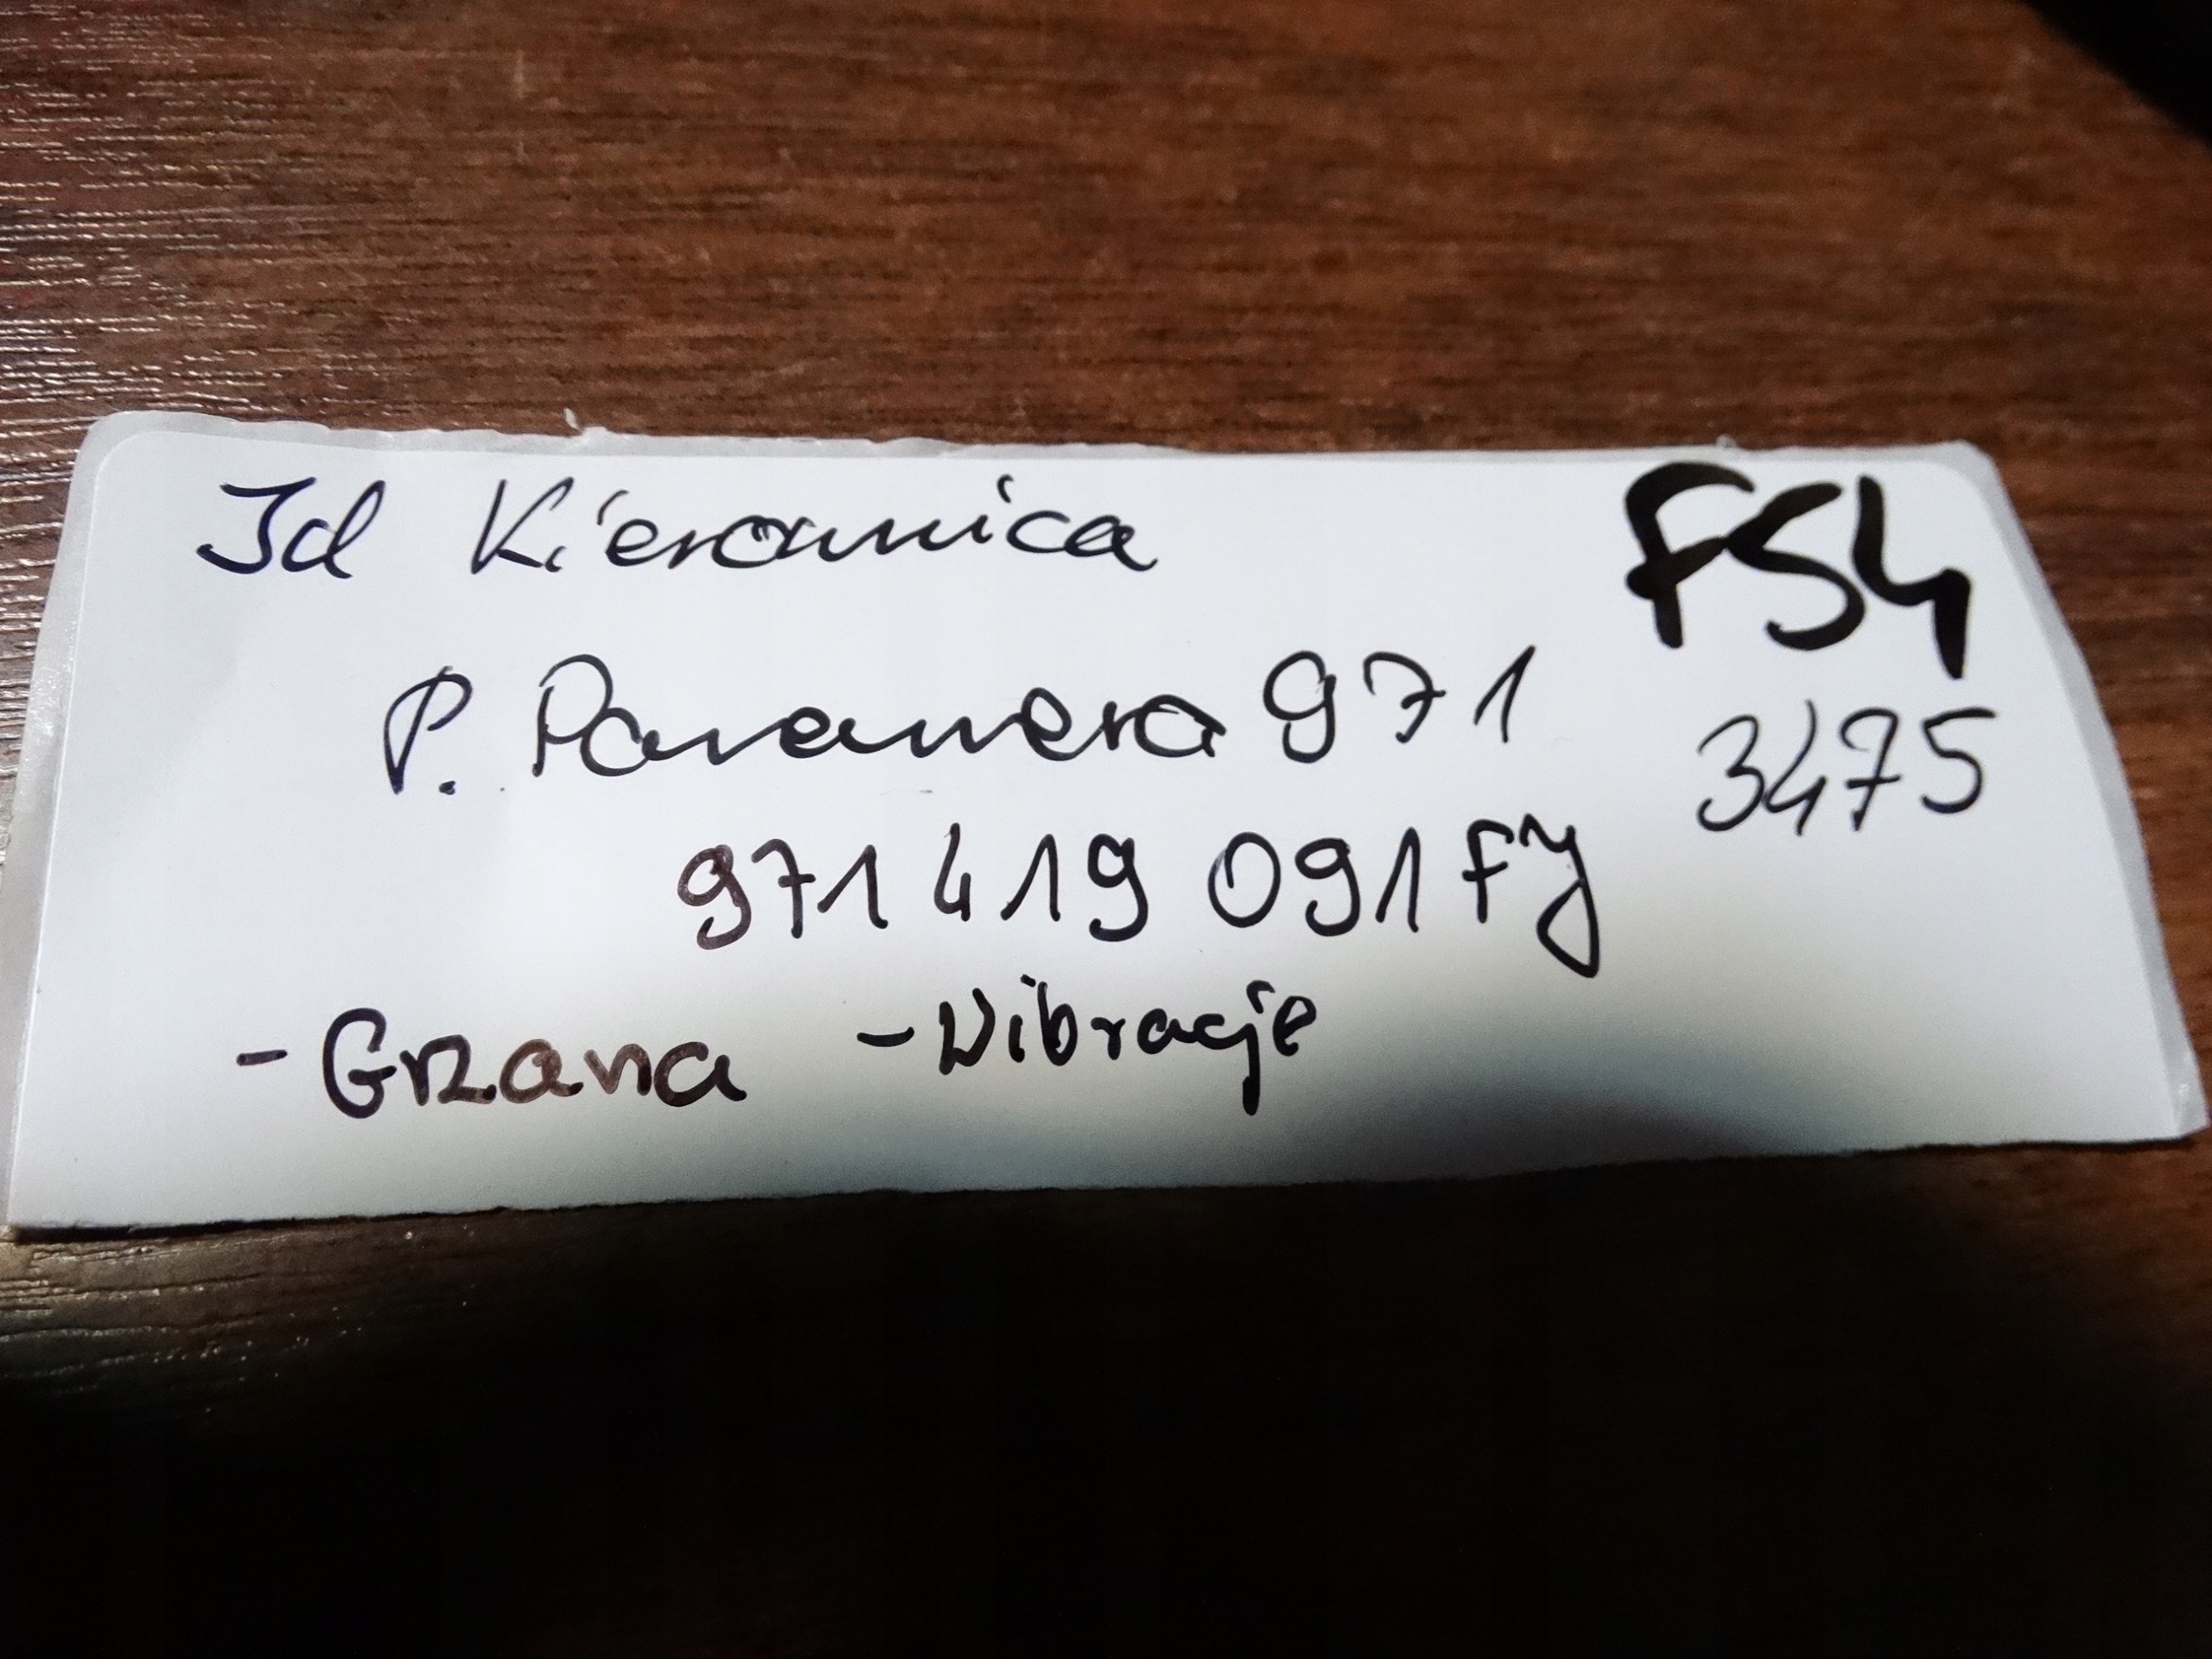 Id Kierownica
FS4
P. Panamera 971
3475
971 419 091 FJ
-Grzana -Wibracje